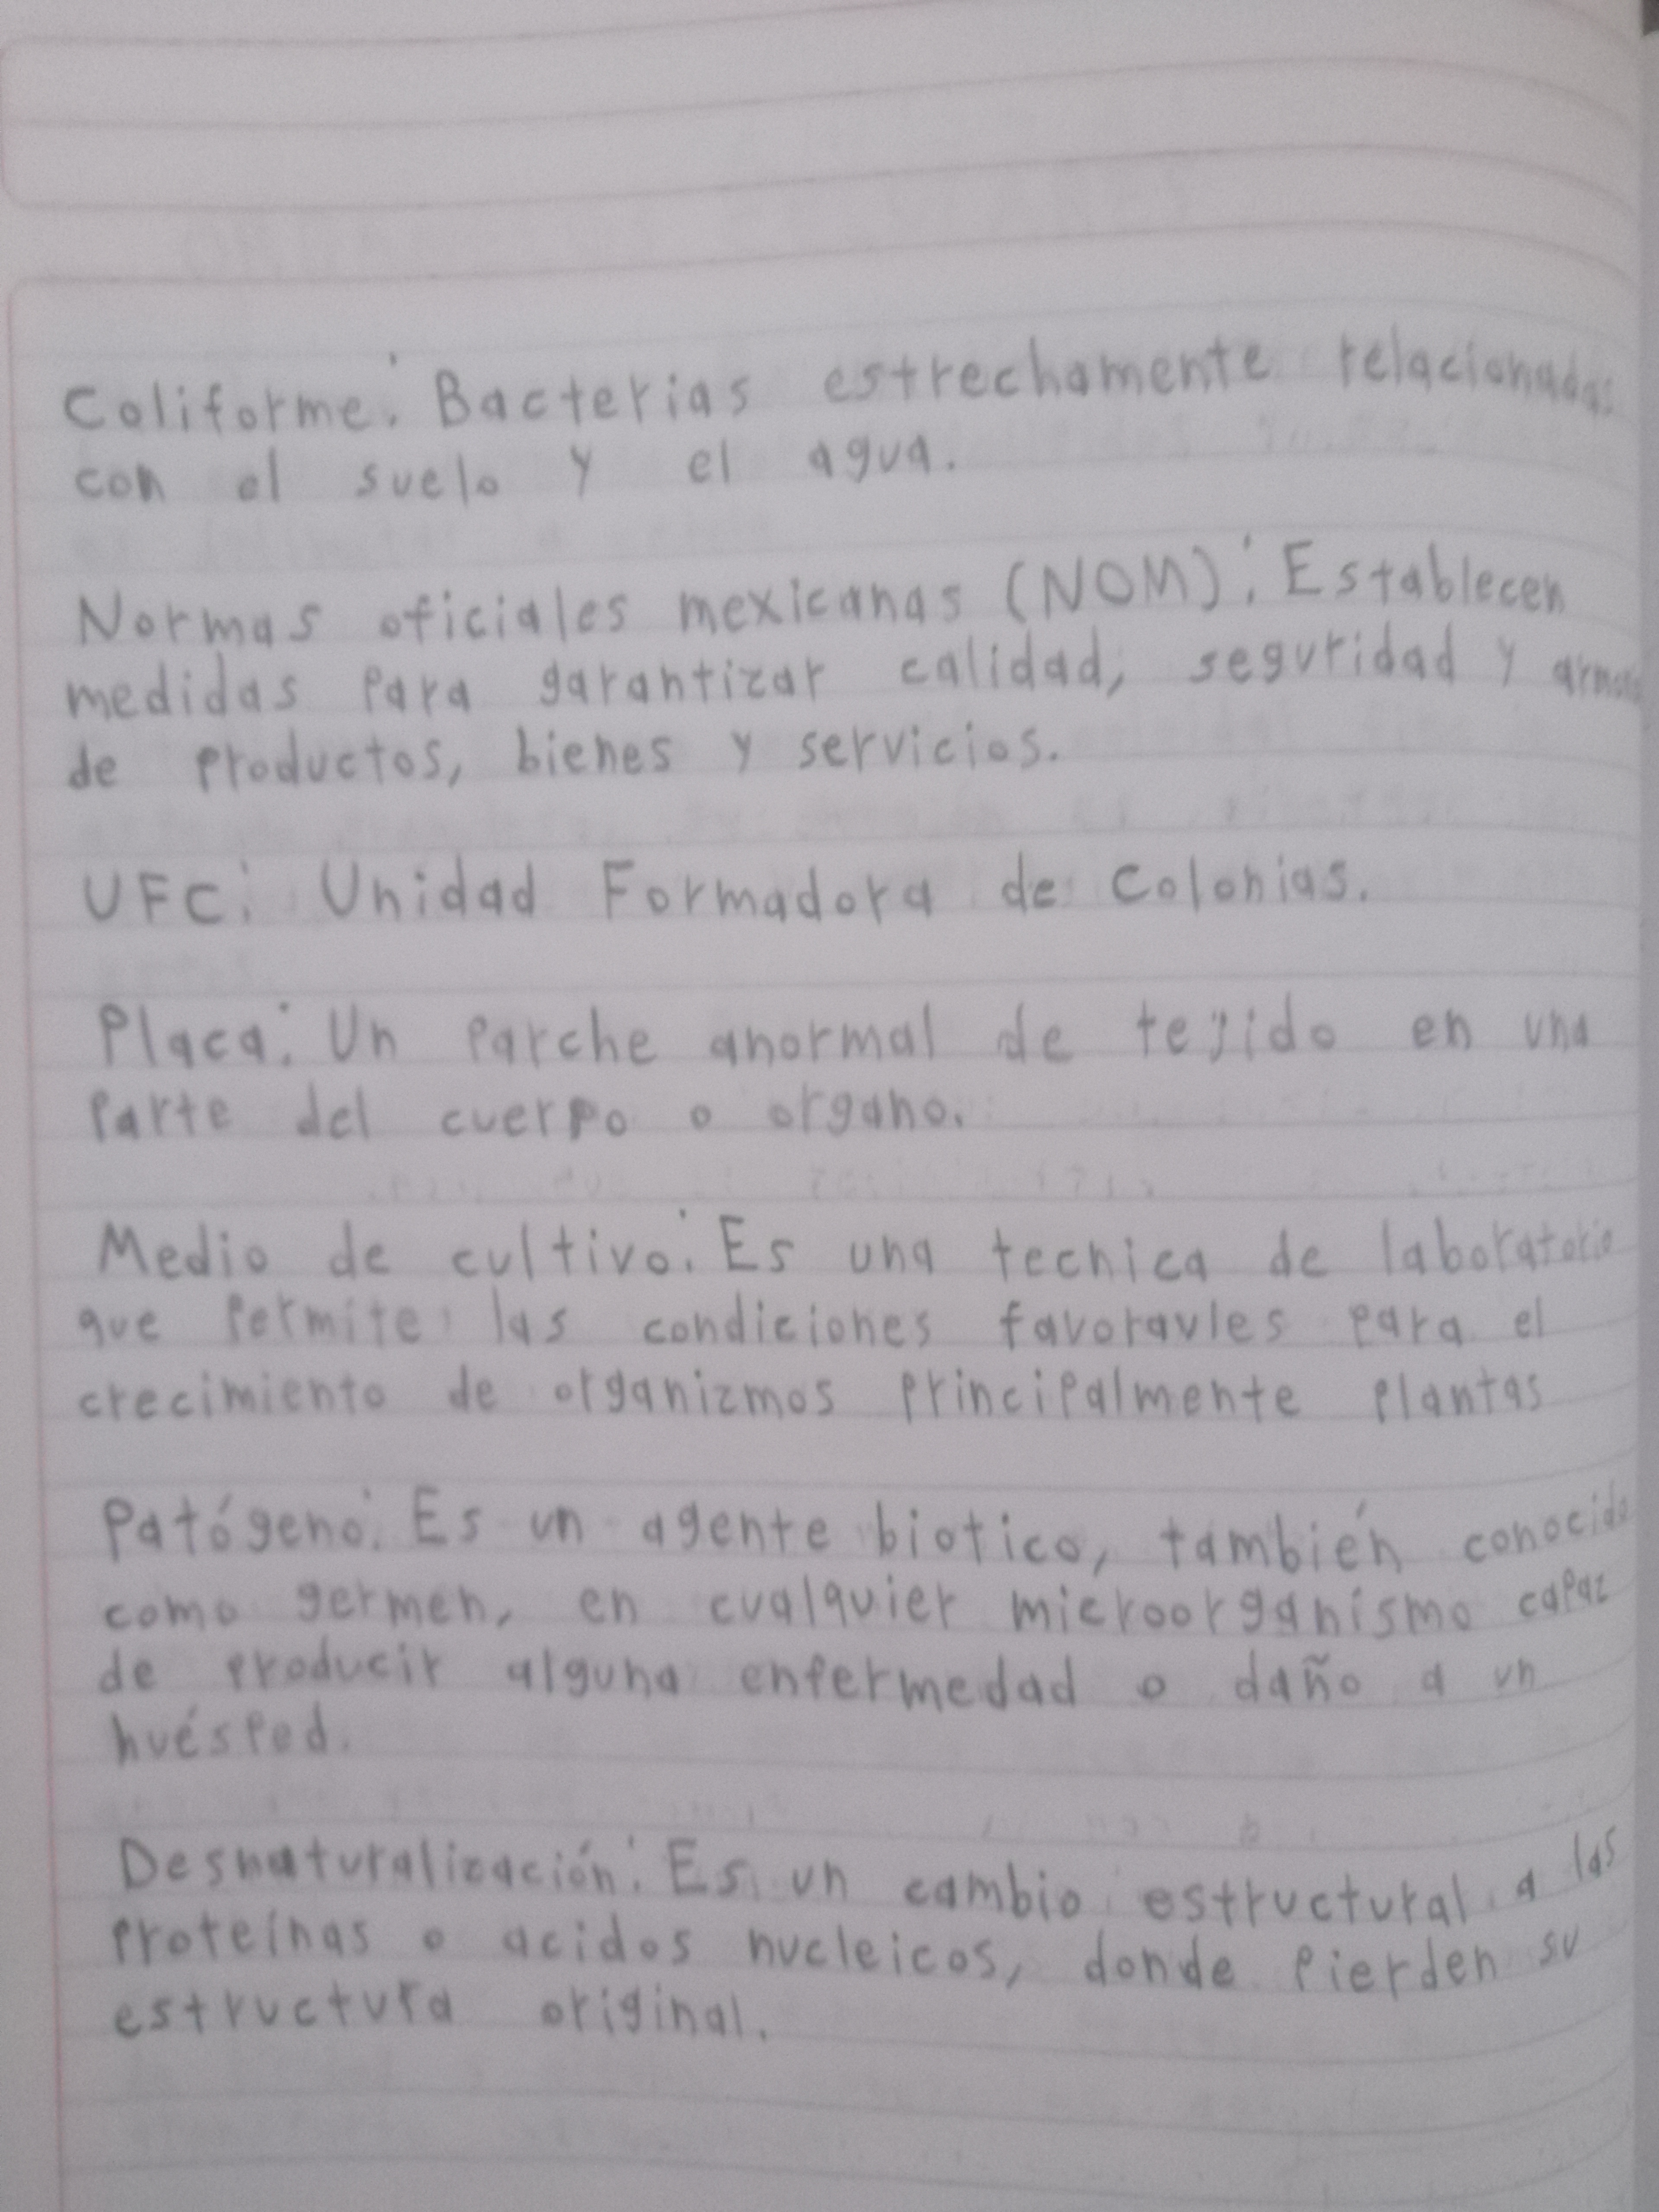 Coliforme: Bacterias estrechamente relacionadas
con el suelo y el agua.
Normas oficiales mexicanas (NOM): Establecen
medidas para garantizar calidad, seguridad y
de productos, bienes y servicios.
UFC: Unidad Formadora de Colonias.
Placa: Un parche anormal de tejido en una
parte del cuerpo o organo.
Medio de cultivo: Es una tecnica de laboratorio
que permite las condiciones favoravles para el
crecimiento de organizmos principalmente plantas
Patógeno: Es un agente biotico, también conocido
como germen, en cualquier microorganismo capaz
de producir alguna enfermedad o daño a un
huésped.
Desnaturalización: Es un cambio estructural a las
proteínas o acidos nucleicos, donde pierden su
estructura original.